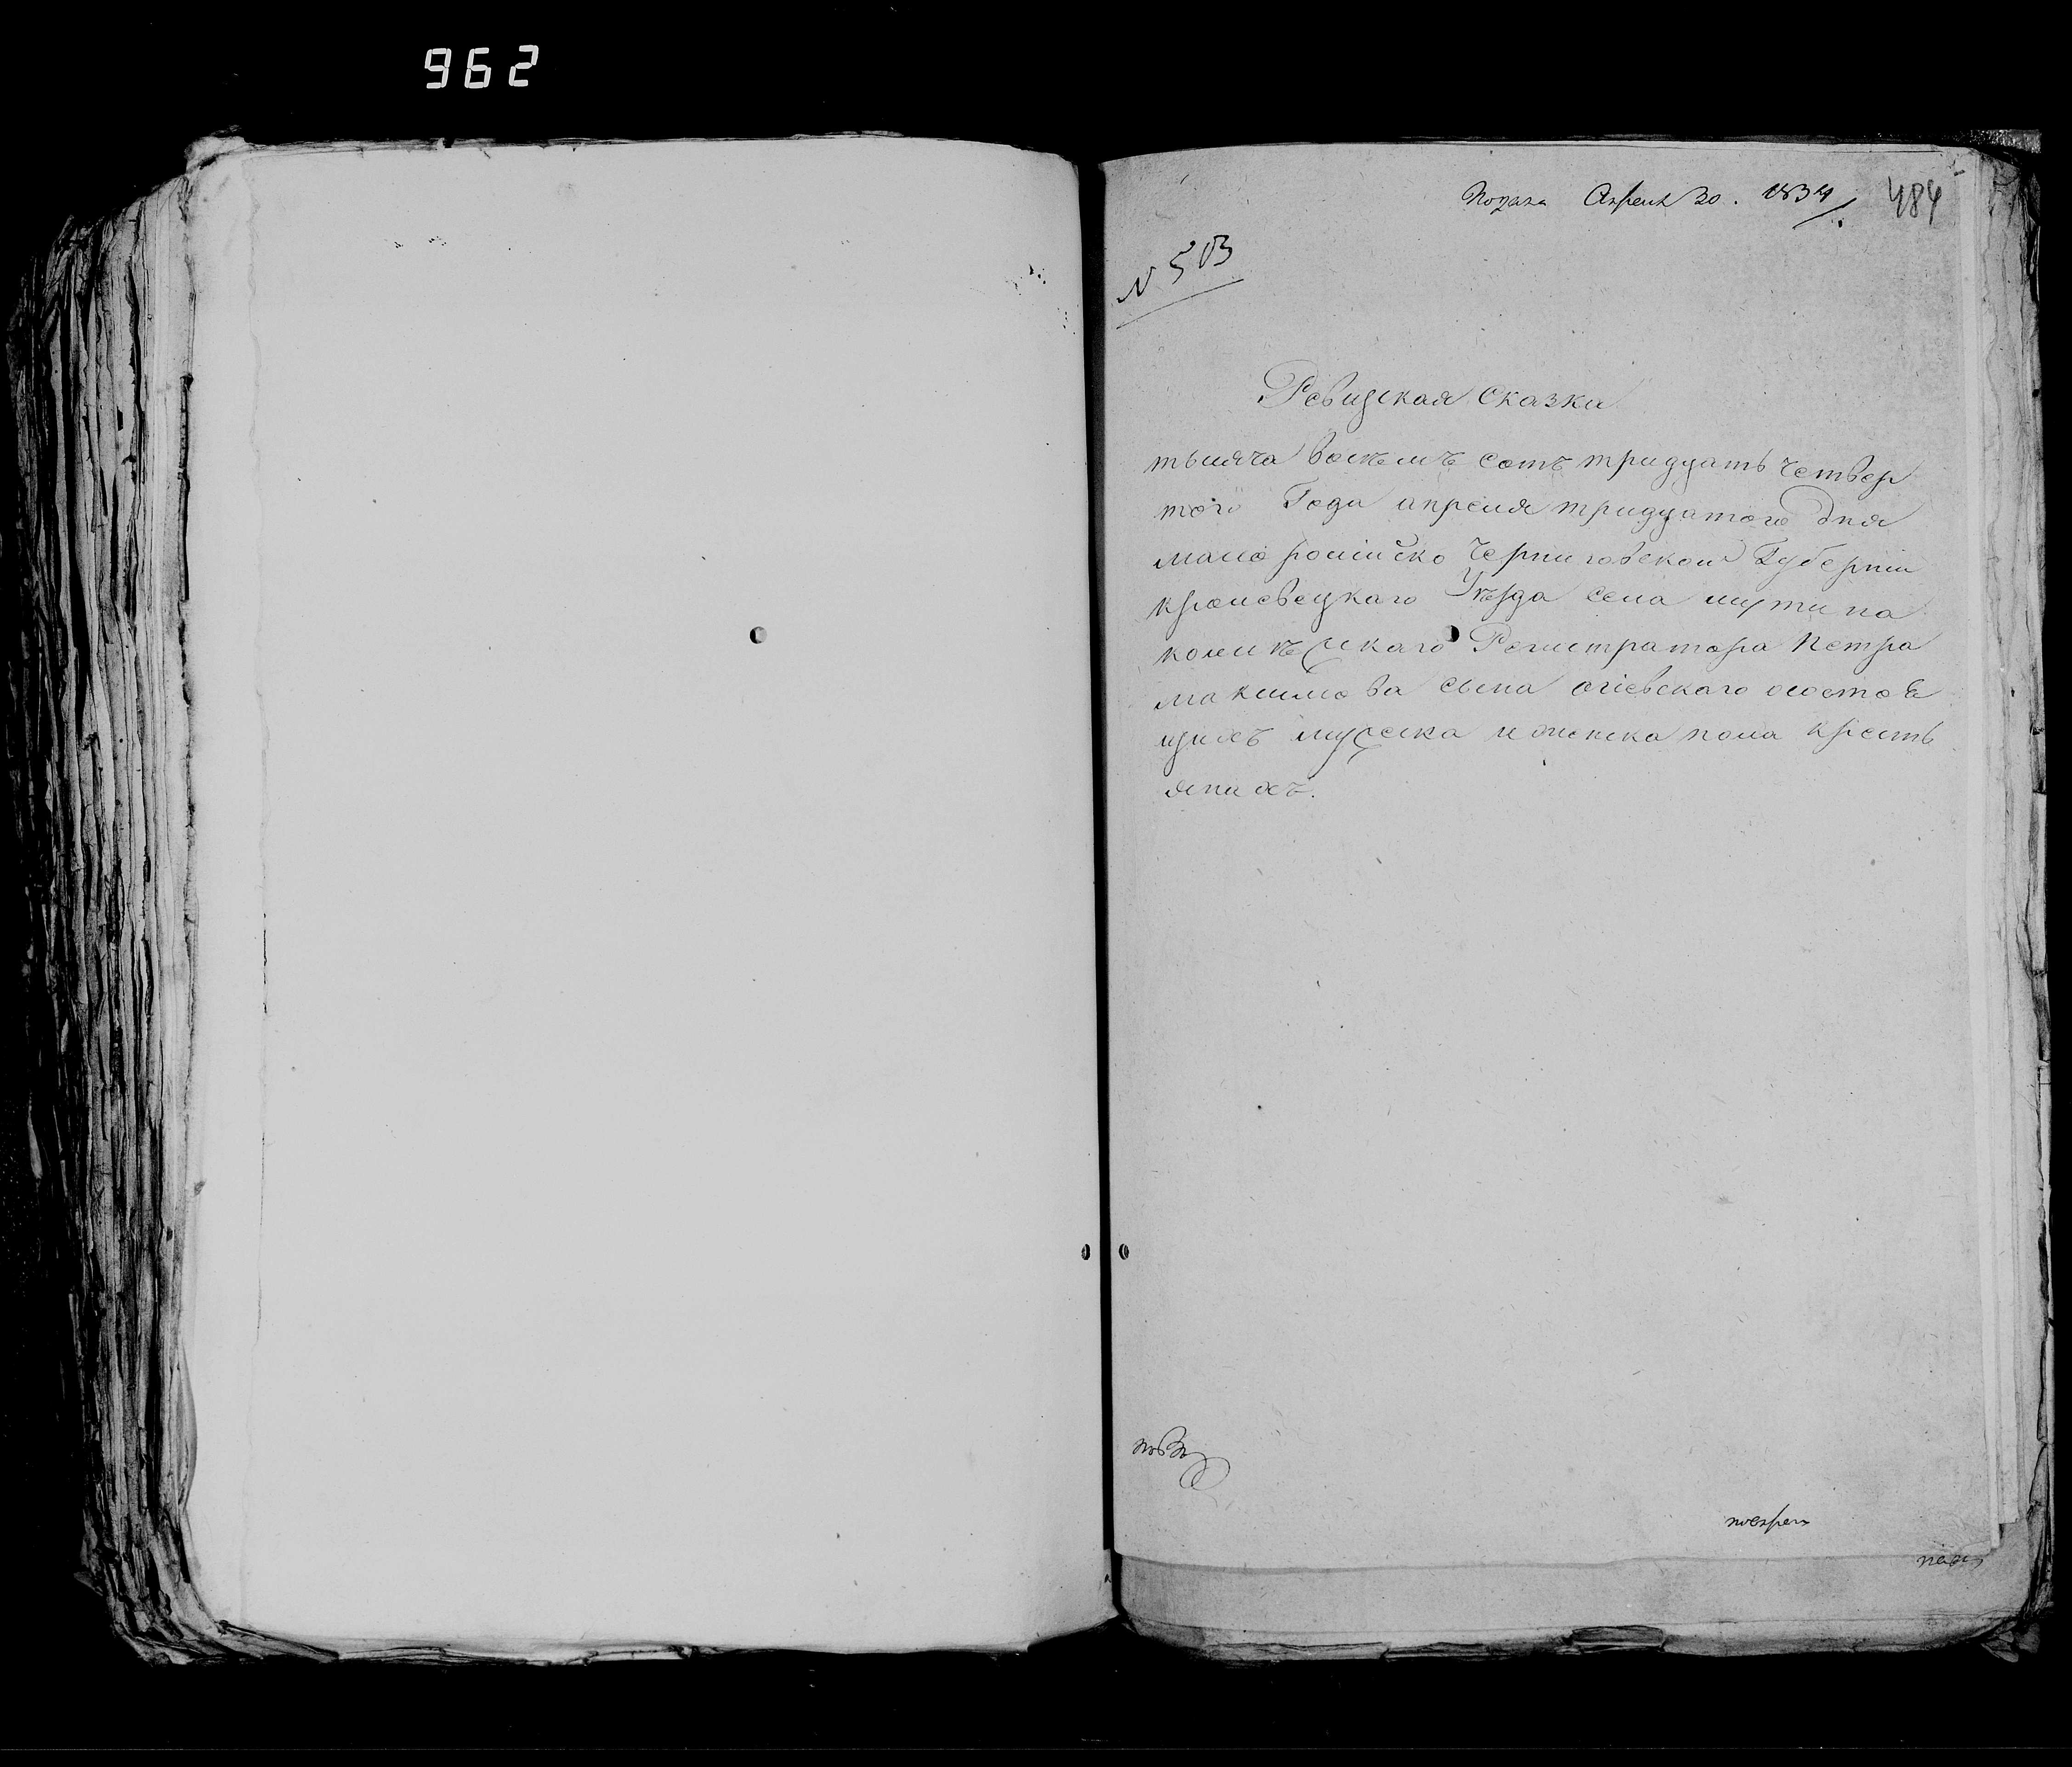 962
Подана Апреля 30. 1834 484
N 503
Ревизская Сказка
тысяча восемъ сотъ тридцать четвер
того Года апреля тридцатого Дня
мало росийско Черниговской Губернии
кролевецкаго Уезда села мутина
колежскаго Регистратора Петра
максимова сына огиевскаго осостоя
щихъ мужска и женска пола кресть
янахъ.